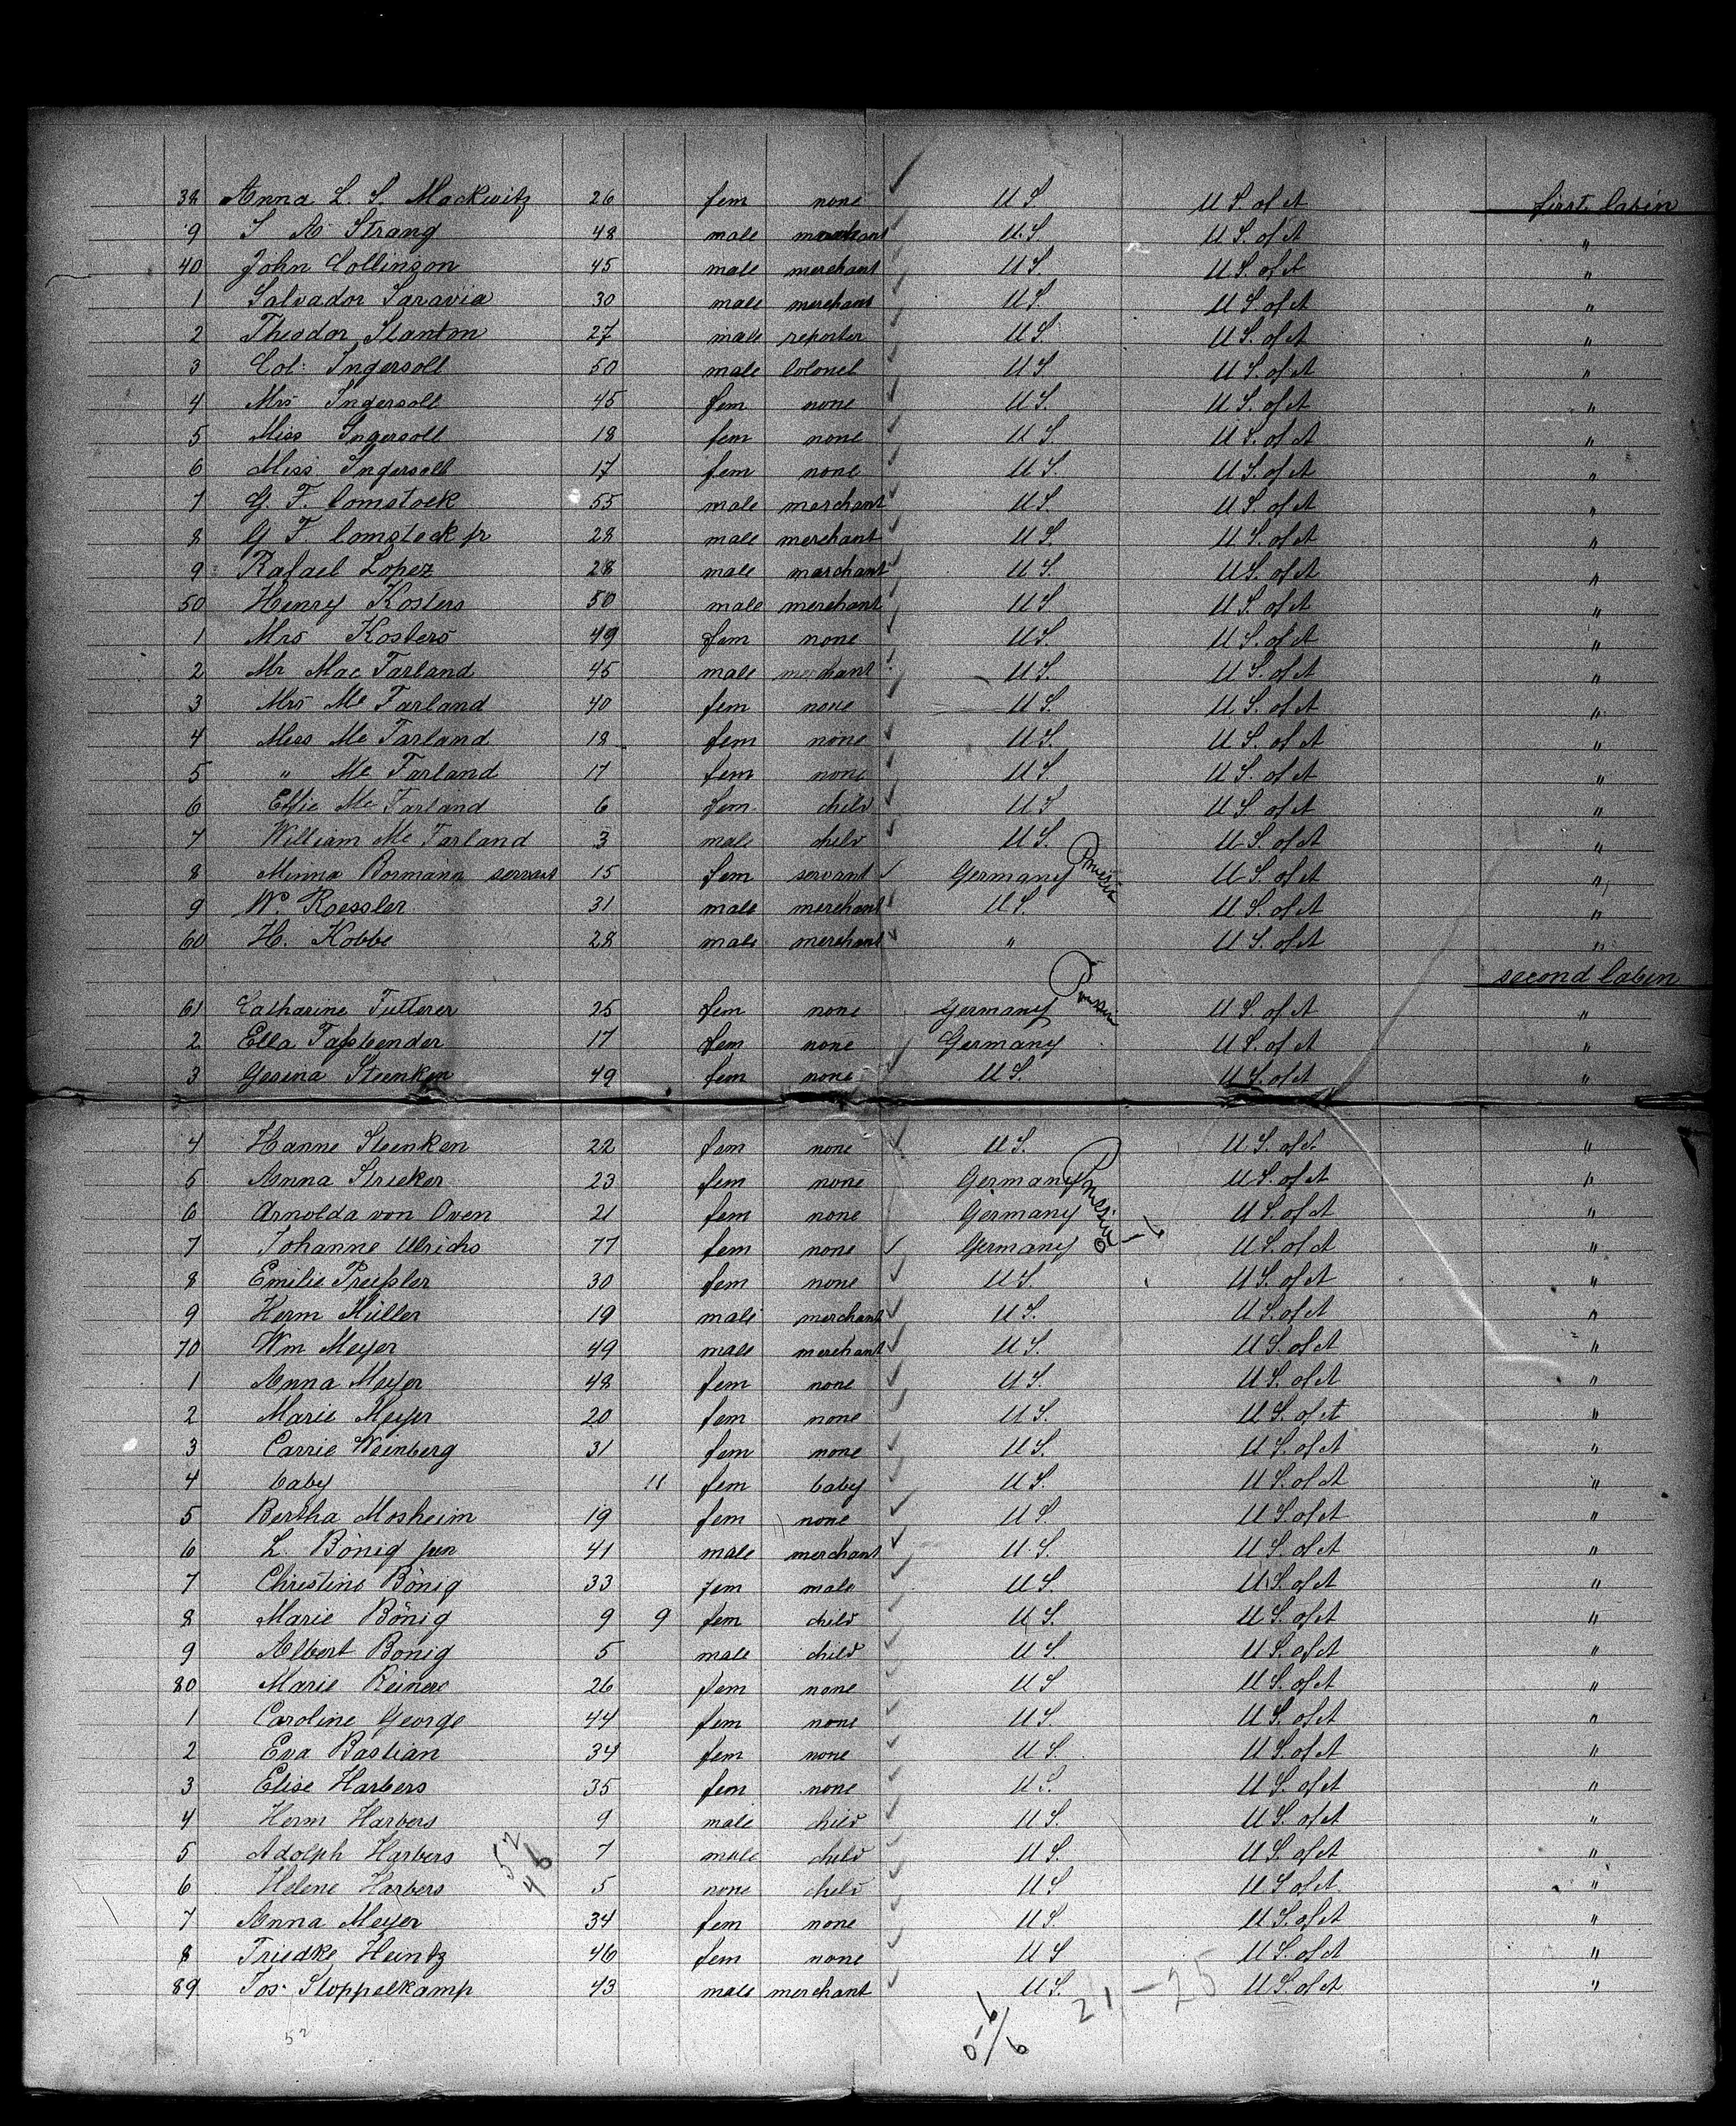 38 Anna L. S. Mackwitz 26 fem none U S U S. of A first Cabin
9 S A Strang 48 male merchant U.S. U S. of A "
40 John Collinson 45 male merchant U S. U S. of A "
1 Salvador Saravia 30 male merchant U S. U S. of A "
2 Theodor Stanton 27 male reporter U S. U S. of A "
3 Col: Ingersoll 50 male Colonel U S U S. of A "
4 Mrs Ingersoll 45 fem none U S. U S. of A "
5 Miss Ingersoll 18 fem none U S. U S. of A "
6 Miss Ingersoll 17 fem none U S. U S. of A "
7 G. F. Comstock 55 male merchant U S. U S. of A "
8 G F Comstock jr 28 male merchant U S. U S. of A "
9 Rafael Lopez 28 male merchant U S. U S. of A "
50 Henry Kosters 50 male merchant U S U S. of A "
1 Mrs Kosters 49 fem none U S. U S. of A "
2 Mr Mac Farland 45 male merchant U S. U S. of A "
3 Mrs Mc Farland 40 fem none U S. U S. of A "
4 Miss Mc Farland 18 fem none U S. U S. of A "
5 " Mc Farland 17 fem none U S. U S. of A "
6 Effie Mc Farland 6 fem child U S U S. of A "
7 William Mc Farland 3 male child U S. U S. of A "
8 Minna Bormann servant 15 fem servant Germany Prussia U S. of A "
9 W. Roessler 31 male merchant U S. U S. of A "
60 H. Kobbe 28 male merchant " U S. of A "
second Cabin
61 Catharine Futterer 25 fem none Germany Prussia U S. of A "
2 Ella Faßbender 17 fem none Germany U S. of A "
3 Gesina Steenken 49 fem none U S. U S. of A "
4 Hanne Steenken 22 fem none U S. U S. of A "
5 Anna Strieker 23 fem none Germany Prussia U S. of A "
6 Arnolda von Oven 21 fem none Germany U S. of A "
7 Johanne Ulrichs 77 fem none Germany 0-6 U S. of A "
8 Emilie Preißler 30 fem none U S. U S. of A "
9 Herm Müller 19 male merchant U S. U S. of A "
70 Wm Meyer 49 male merchant U S. U S. of A "
1 Anna Meyer 48 fem none U S. U S. of A "
2 Marie Meyer 20 fem none U S. U S. of A "
3 Carrie Weinberg 31 fem none U S. U S. of A "
4 baby 11 fem baby U S. U S. of A "
5 Bertha Mosheim 19 fem none U S U S. of A "
6 L. Bönig jun 41 male merchant U S. U S. of A "
7 Christine Bönig 33 fem male U S. U S. of A "
8 Marie Bönig 9 9 fem child U S. U S. of A "
9 Albert Bonig 5 male child U S. U S. of A "
80 Marie Reiners 26 fem none U S U S. of A "
1 Caroline George 44 fem none U S. U S. of A "
2 Eva Bastian 34 fem none U S. U S. of A "
3 Elise Harbers 35 fem none U S. U S. of A "
4 Herm Harbers 9 male child U S. U S. of A "
5 Adolph Harbers 52 7 male child U S. U S. of A "
6 Helene Harbers 46 5 none child U S U S of A "
7 Anna Meyer 34 fem none U S U S. of A "
8 Friedke Heintz 46 fem none U S U S. of A "
89 Jos. Stoppelkamp 43 male merchant U S. U S. of A "
21-25
0-6/6
52